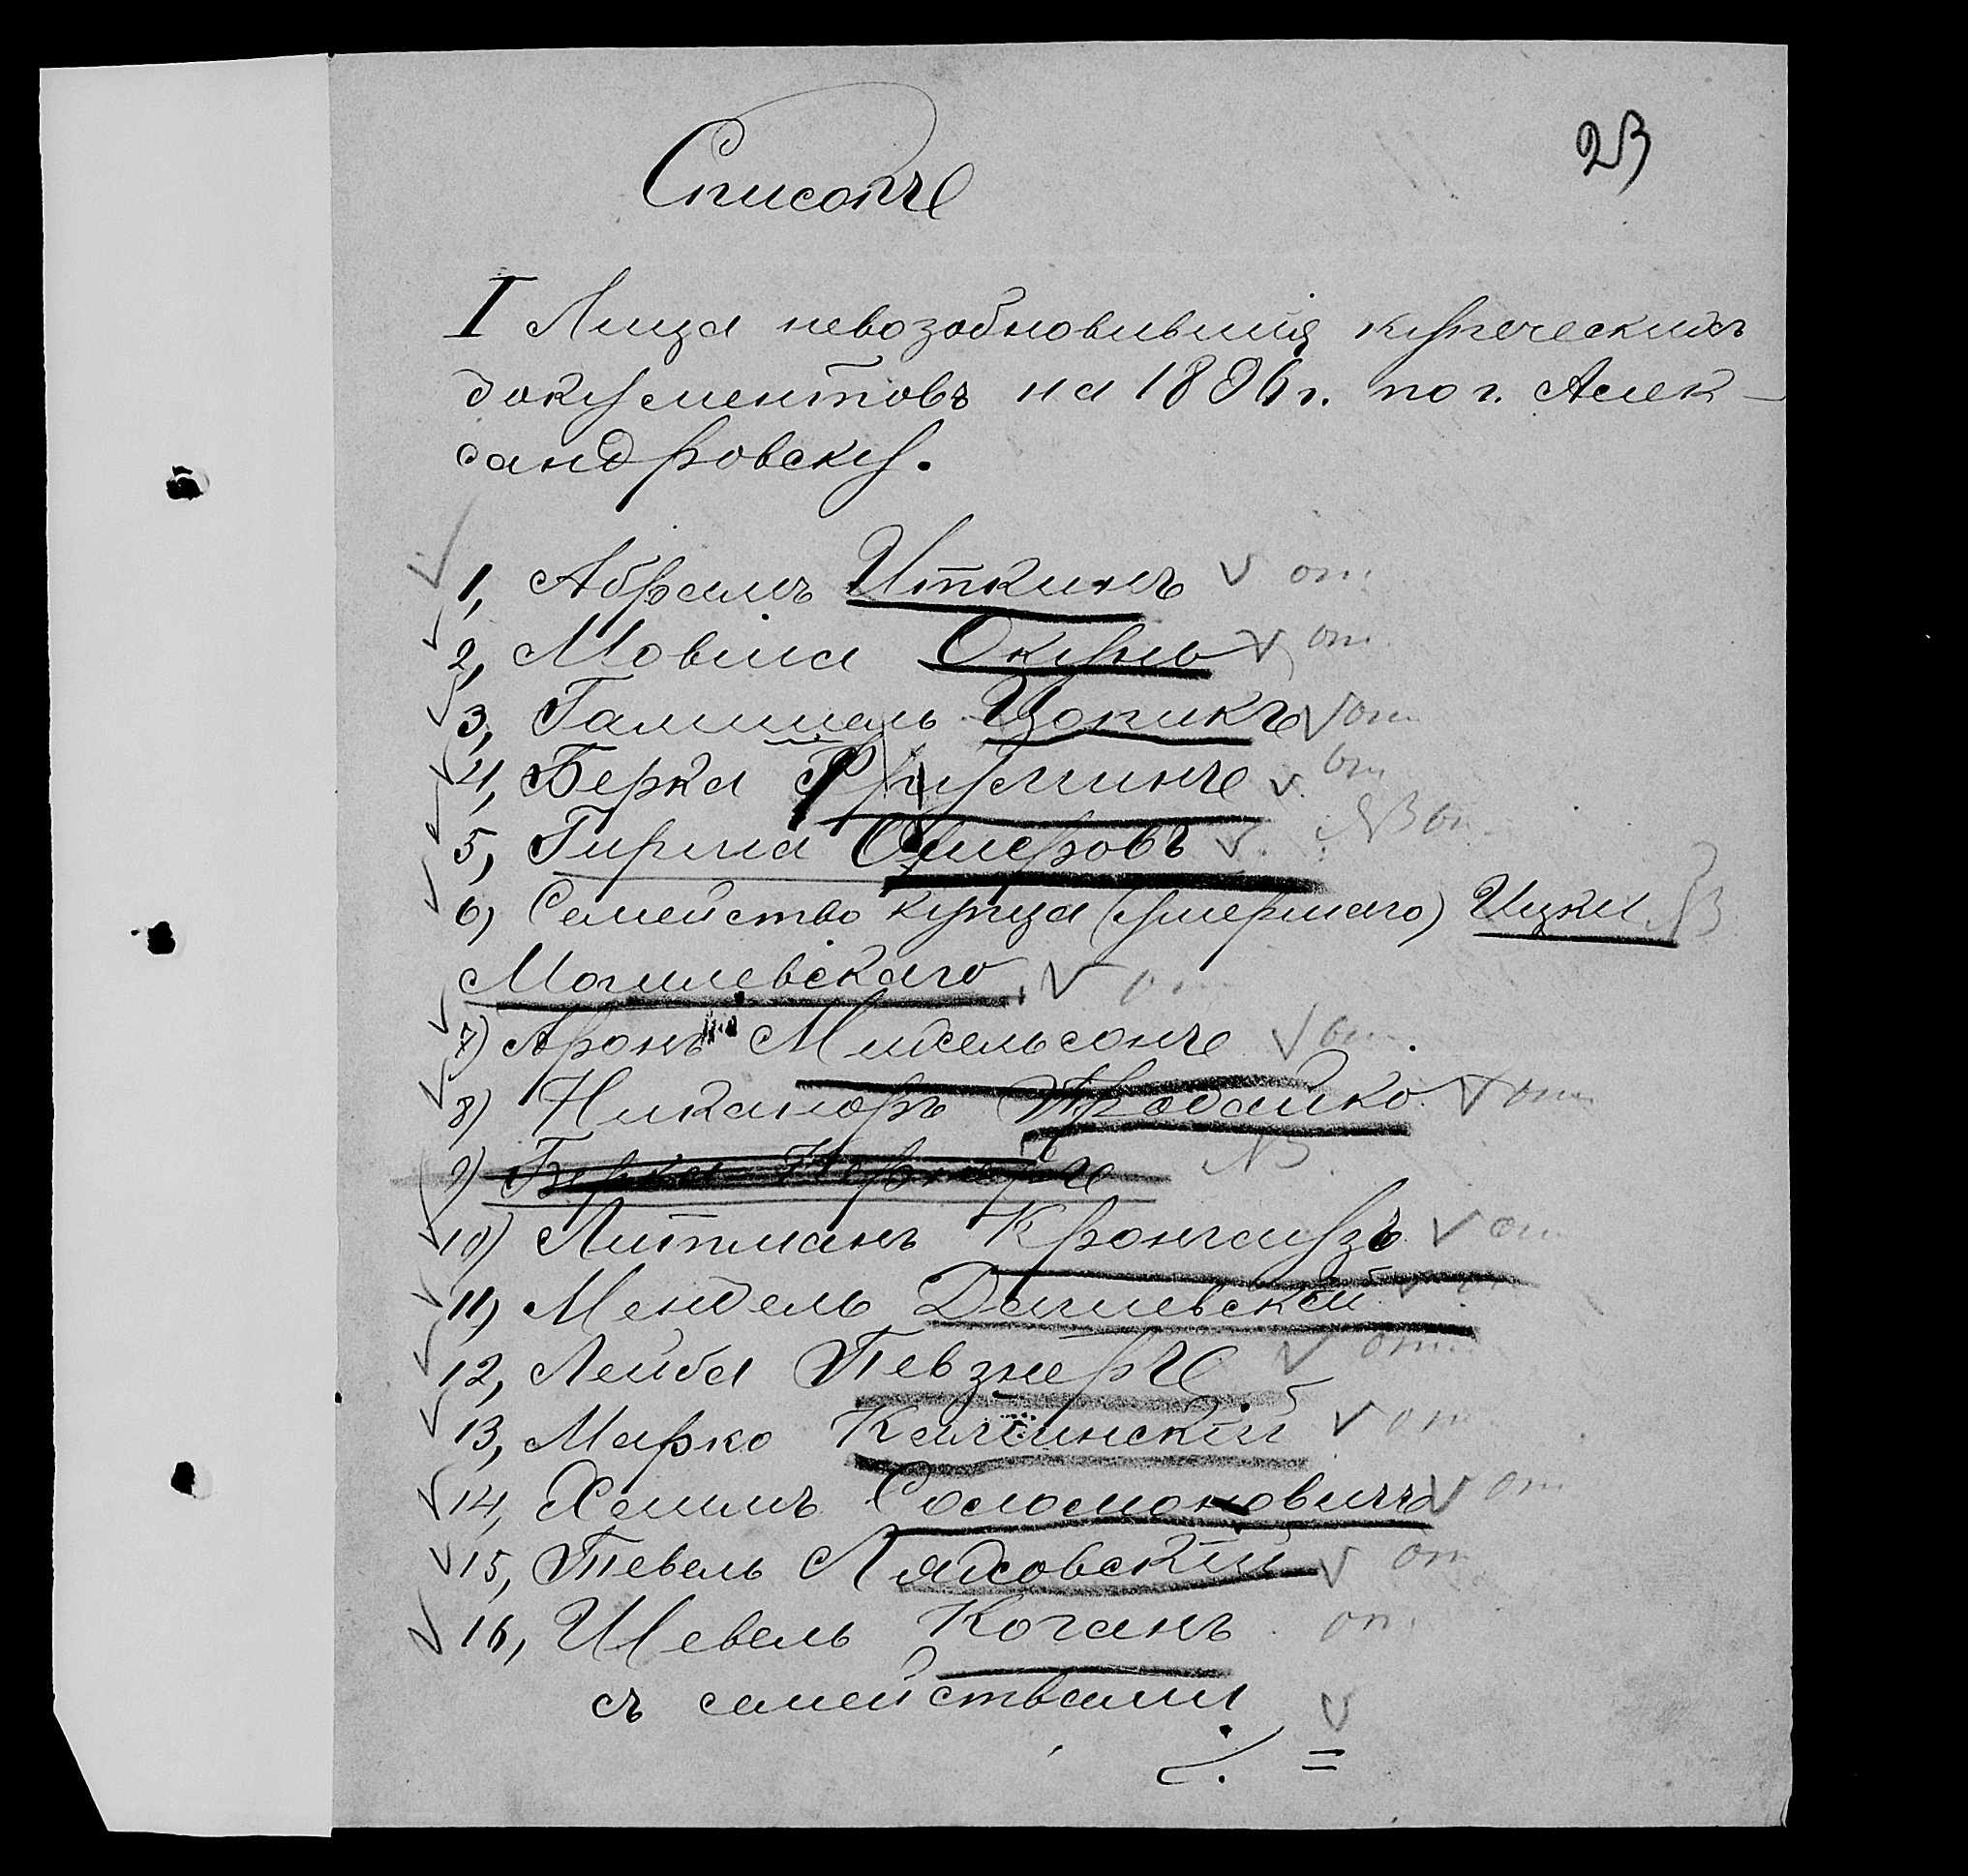 23
Списокъ
I Лица невозобновившія купеческихъ
документовъ на 1896 г. по г. Алек-
сандровску.
1, Абрамъ Иткинъ от.
2, Мовша Окунь от.
3, Гамшель Цопикъ от.
4, Берка Фруминъ от.
5, Гирша Ошеровъ NB от.
6) Семейство купца (умершаго) Ицки NB
Могилевскаго от.
7) Аронъ Михельсонъ от.
8) Никаноръ Продайко от.
9) Берка NB
10) Литманъ Кронгаузъ от.
11) Мендель Дагилевскій от.
12, Лейба Певзнеръ от.
13, Марко Калминскій от.
14, Хаимъ Соломоновичъ от.
15, Тевель Ляховскій от.
16, Шевель Коганъ от.
съ семействами